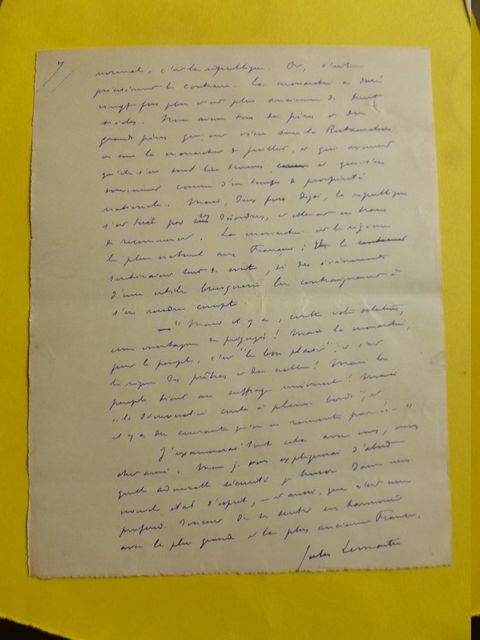 7/
normal, c'est la république. Or, c'est
précisément le contraire. La monarchie a duré
vingt fois plus et est plus ancienne de huit
siècles. Nous avons tous des pères et des
grands-pères qui ont vécu sous la Restauration
et sous la monarchie de juillet, et qui avouent
qu'ils s'en sont bien trouvés et qui s'en
souviennent comme d'un temps de prospérité
nationale. Mais, deux fois déjà, la république
s'est tuée par ses désordres, et elle est en train
de recommencer. La monarchie est le régime
le plus naturel aux Français ; ils le
sentiraient tout de suite, si des événements
d'une utile brusquerie les contraignaient à
s'en rendre compte.
— "Mais il y a, contre votre solution,
une montagne de préjugés ! Mais la monarchie,
pour le peuple, c'est "le bon plaisir", et c'est
le règne des prêtres et des nobles ! Mais le
peuple tient au suffrage universel ! Mais
"la démocratie coule à pleins bords", et
il y a des courants qu'on ne remonte pas !.. "
J'examinerai tout cela avec vous, mon
cher ami. Mais je vous expliquerai d'abord
quelle admirable sécurité je trouve dans mon
nouvel état d'esprit, — et aussi, que c'est une
profonde douceur de se sentir en harmonie
avec la plus grande et la plus ancienne France.
Jules Lemaitre